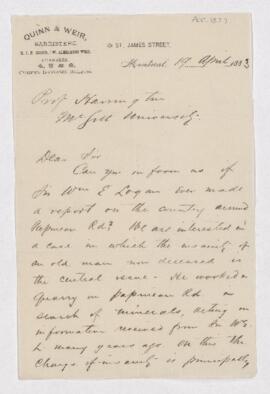 Apr. 1883
QUINN & WEIR,
BARRISTERS,
ADVOCATES,
ST. JAMES STREET,
Montreal 19 April 1883
Prof Harrington
McGill University.
Dear Sir
Can you inform us if
Sir Wm E Logan ever made
a report on the country around
Papineau Rd? We are interested in
a case in which the insanity of
an old man now deceased is
the central issue. He worked a
Quarry on Papineau Rd. in
search of minerals, acting on
information received from Sir W. E.
L. many years ago. On this the
Charge of insanity is principally